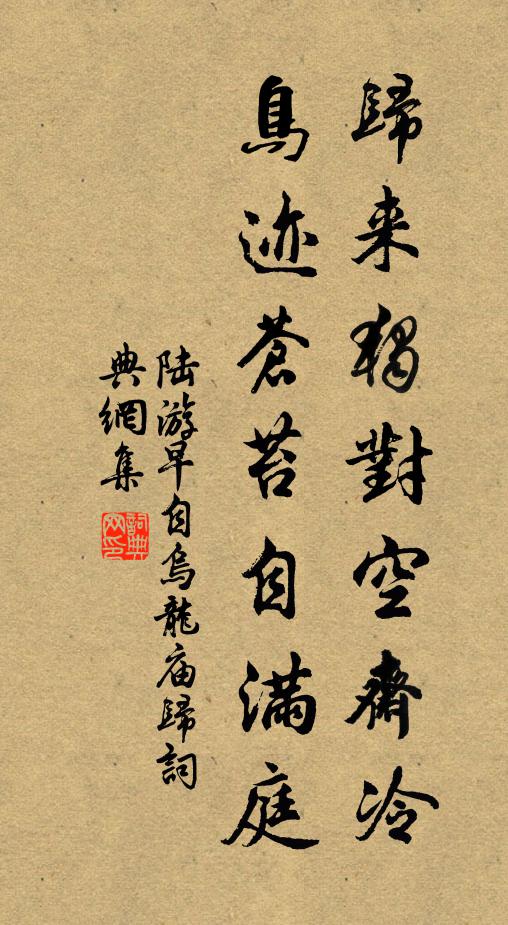 歸来獨對空齋冷
鳥迹蒼苔自滿庭
陆游早自烏龍庙歸詞
典網集
詞典网印